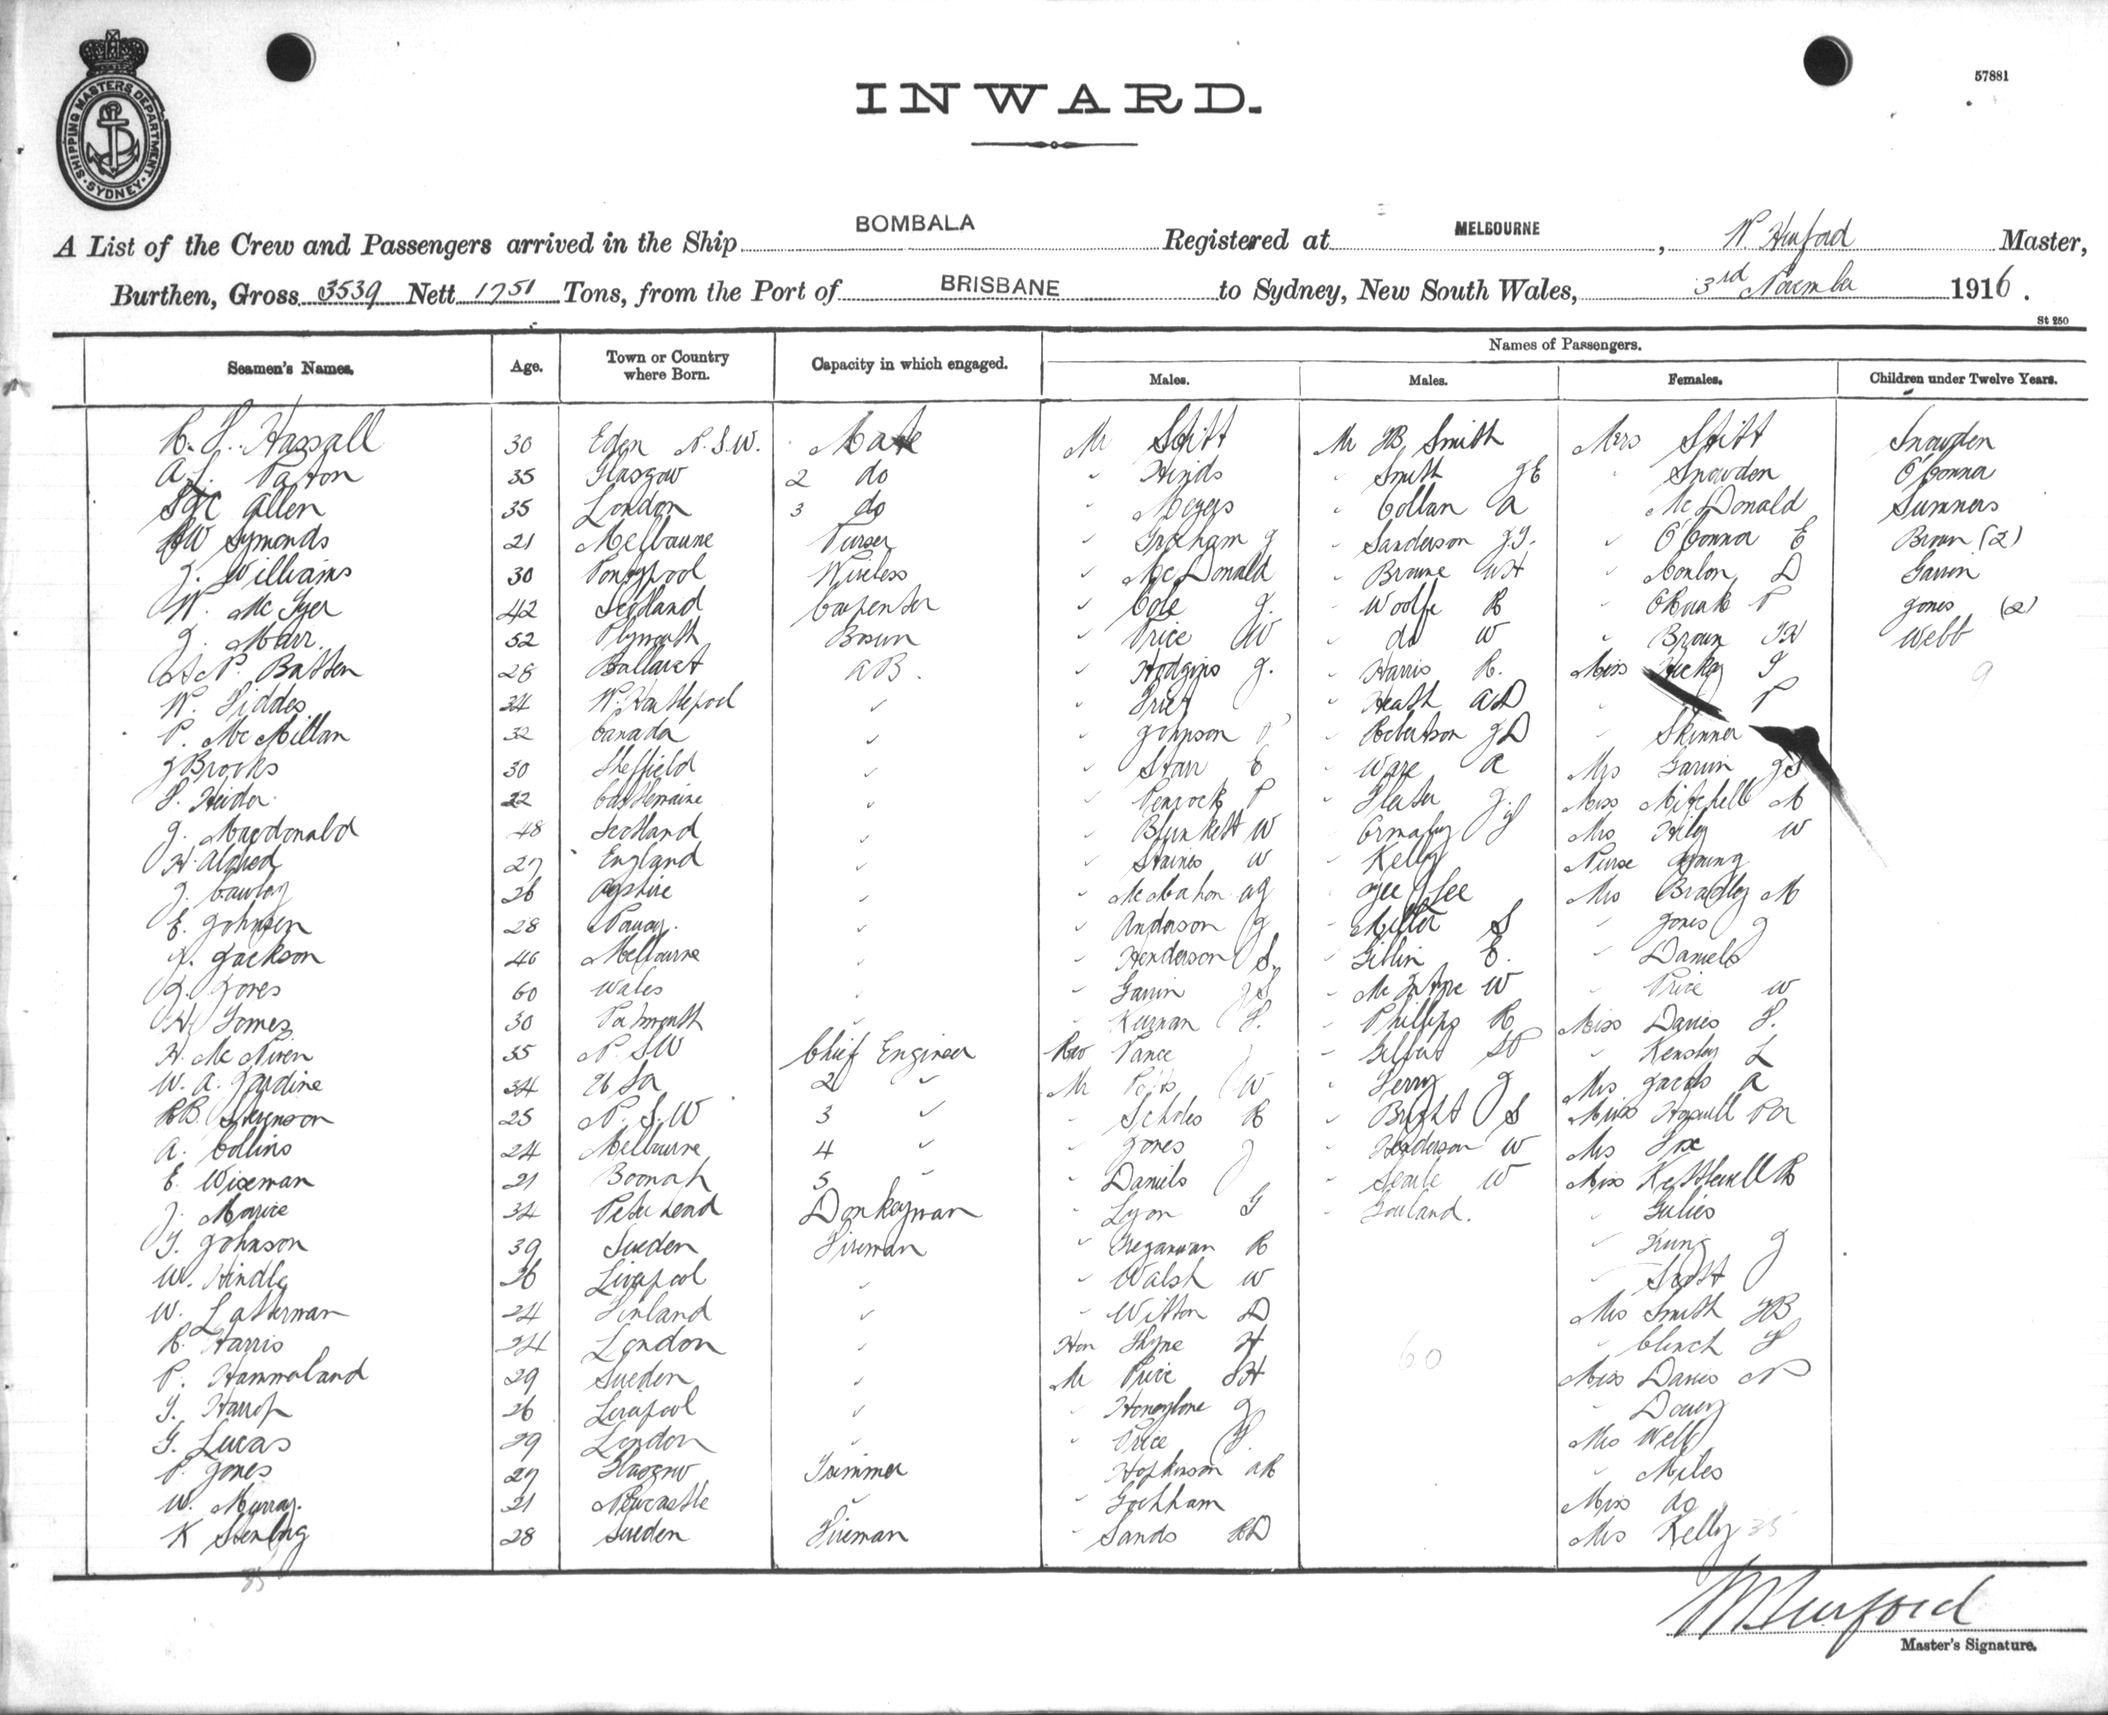 SHIPPING MASTERS DEPARTMENT
SYDNEY
57881
INWARD.
A List of the Crew and Passengers arrived in the Ship BOMBALA Registered at MELBOURNE, W Hurford Master,
Burthen, Gross 3539 Nett 1751 Tons, from the Port of BRISBANE to Sydney, New South Wales, 3rd November 1916.
St 250
Names of Passengers.
Seamen's Names. Age. Town or Country where Born. Capacity in which engaged. Males. Males. Females. Children under Twelve Years.
Hassall 30 Eden N.S.W. Mate Mr Stitt Mr HB Smith Mrs Stitt Snowden
A.L. Paton 35 Glasgow 2 do " Hinds " Smith GE " Snowden O'Connor
Allen 35 London 3 do " Meggs " Collan A " McDonald Summers
Symonds 21 Melbourne Purser " Graham G " Sanderson " O'Connor E Brown (2)
J. Williams 30 Pontypool Wireless " McDonald " Browne WH " Conlon D Garvin
W. 42 Scotland Carpenter " Cole J. " Woolfe R " P Jones (2)
J. Marr. 52 Plymouth Bosun " Price W " do W " Brown Webb
Batten 28 Ballarat AB. " Hodgins J. " Harris R. Miss 9
W. Fiddes 34 W. Hartlepool " " " Heath AD " P
P. McMillan 32 Canada " " Johnson " Robertson JD " Skinner
J Brooks 30 Sheffield " " Starr E " Ware A Mrs Garvin JS
F. Heider 22 Castlemaine " " P " Slater Miss Mitchell M
J. Macdonald 48 Scotland " " Blunkett W " Mrs Hiley W
H. Aldred 27 England " " Staines W " Kelly Nurse Young
J. Cawley 26 Ayrshire " " McMahon " Gee Lee Mrs Bradley M
E. Johnsen 28 " " Anderson J " Miller S " Jones J
Jackson 46 Melbourne " " Henderson S. " Giblin E. " Daniels
J. Jones 60 Wales " " Garvin JS " McIntyre W " Price W
H. 30 " " F. " Phillips R Miss Davies F.
H. McNiven 35 N. SW Chief Engineer Rev Vance " Gilbert " L
W. A. Jardine 34 2 " Mr Potts W " Terry J Mrs Jacobs A
RB. Stevenson 25 N. S. W 3 " " Scholes R " Bright S Miss
A. Collins 24 Melbourne 4 " " Jones J " Henderson W Mrs Fox
E. Wiseman 21 Boonah 5 " " Daniels " Searle W Miss Kettlewell R
J. 34 Peterhead Donkeyman " Lyon G " Gouland. "
Johnson 39 Sweden Fireman " R " J
W. Hindle 26 Liverpool " " Walsh W "
W. 24 Finland " " Witton D Mrs Smith HB
R. Harris 24 London " Hon Thyne H 60 " Clinch F
P. Hammarland 29 Sweden " Mr Price Miss Davies N
Harrop 26 Liverpool " " Honeybone J "
G. Lucas 29 London " " Price F. Mrs Webb
P. Jones 27 Glasgow Trimmer " Hopkinson AR " Miles
W. Murray. 21 Newcastle " " Miss do
K 28 Sweden Fireman " Sands RD Mrs Kelly 35
35
W Hurford
Master's Signature.